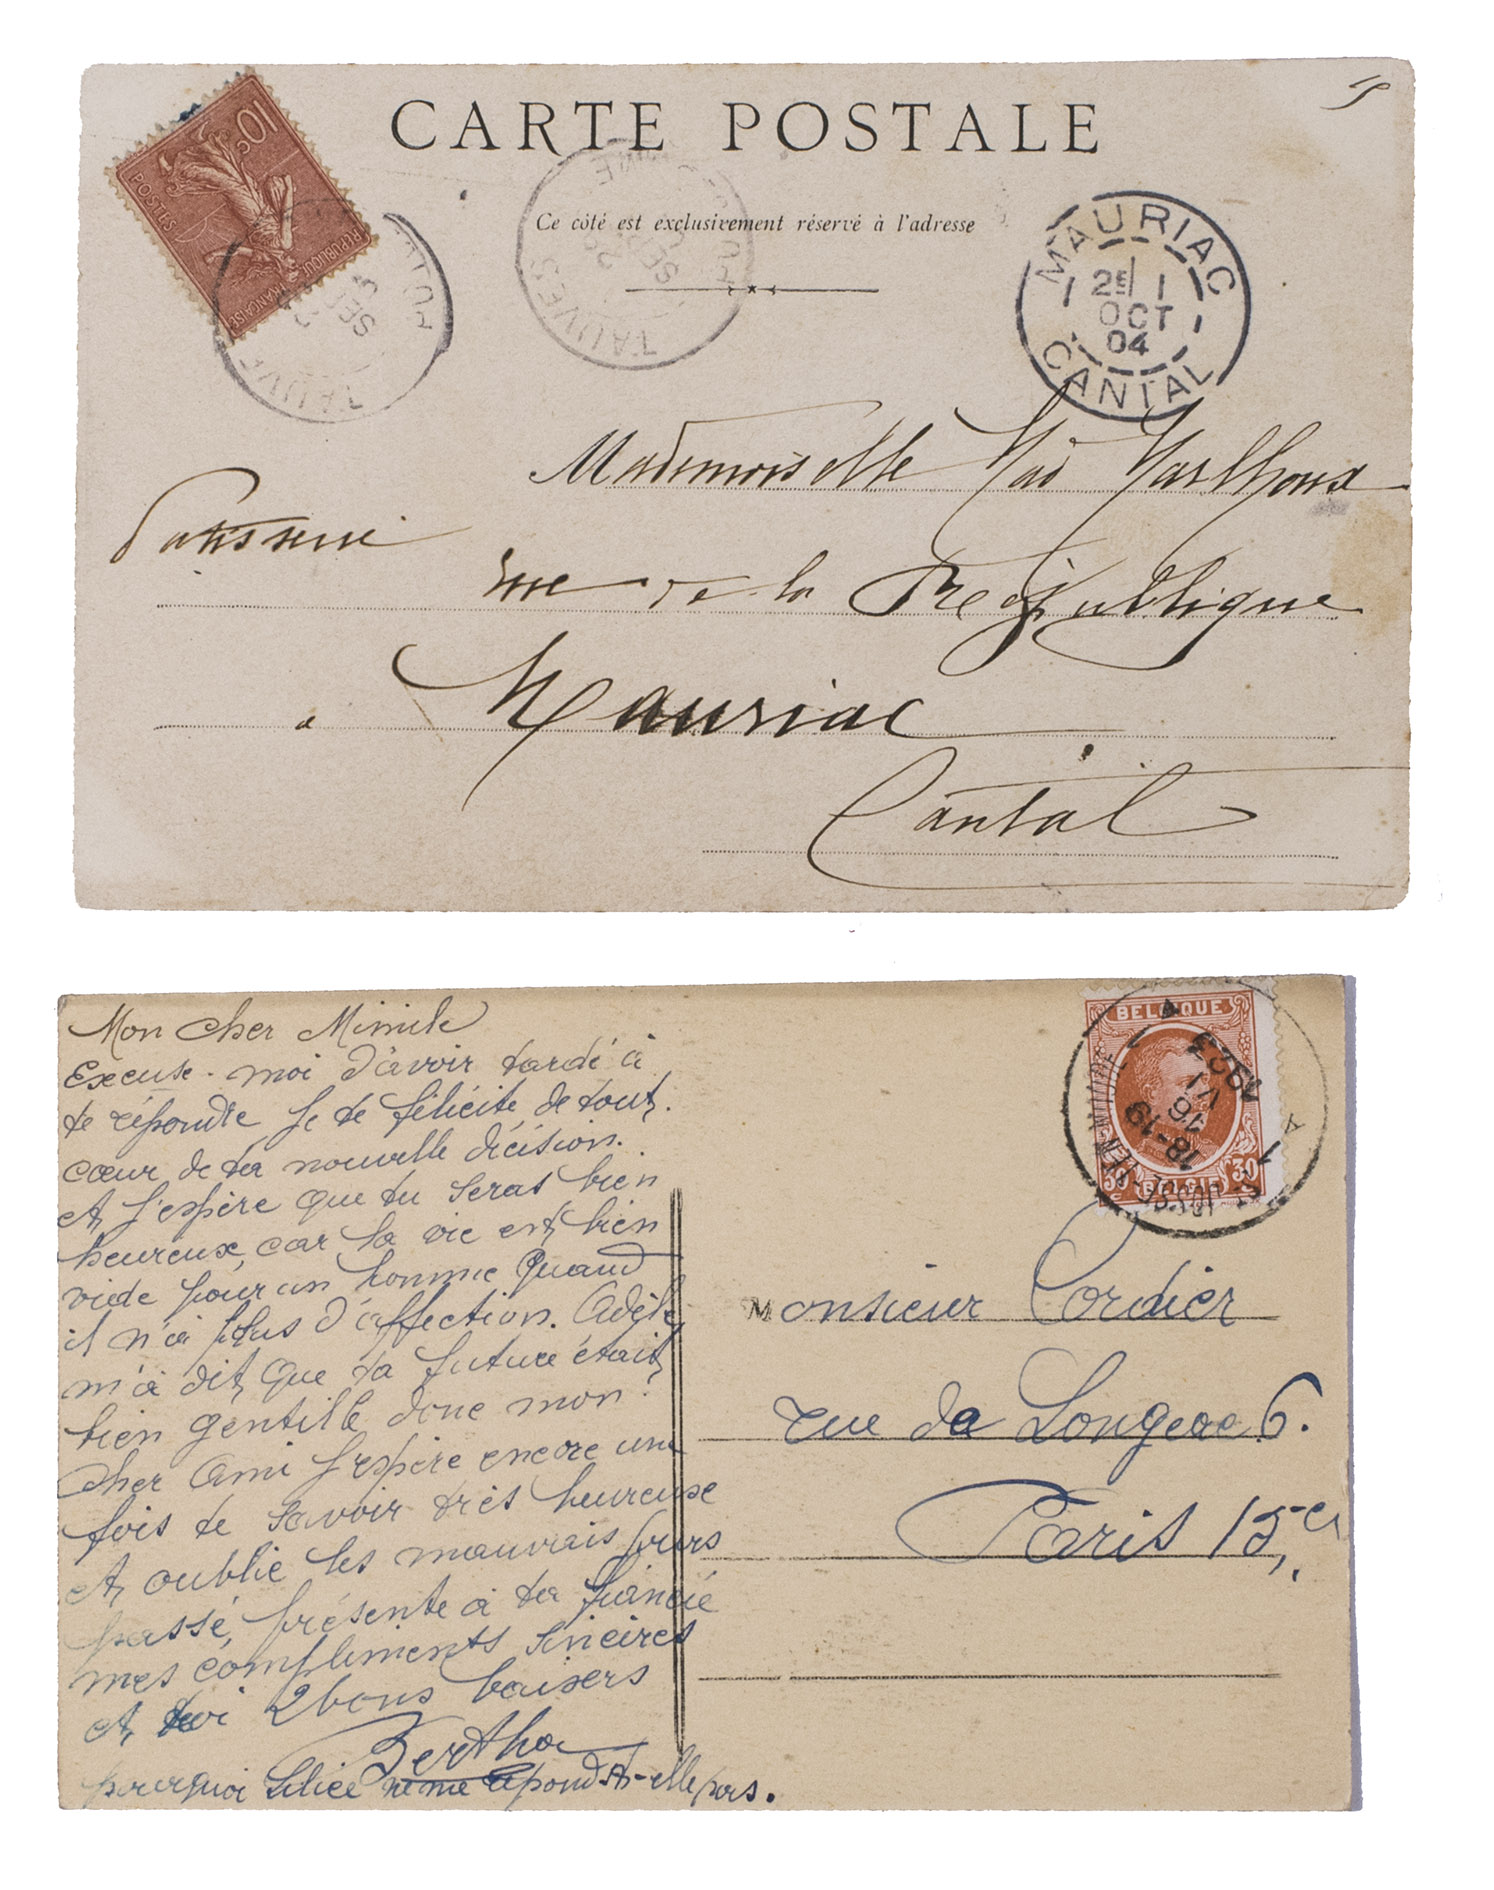 10c
POSTES
REPUBLIQUE FRANÇAISE
CARTE POSTALE
Ce côté est exclusivement réservé à l'adresse
TAUVES
PUY-DE-DOME
SEPT
MAURIAC
25 OCT 04
CANTAL
Mademoiselle
Patisserie
rue de la République
a Mauriac
Cantal
Mon cher Mimile
Excuse-moi d'avoir tardé à
te répondre je te félicite de tout
cœur de ta nouvelle décision.
et j'espère que tu seras bien
heureux, car la vie est bien
vide pour un homme Quand
il n'a plus d'affection. Adèle
m'a dit que ta future était
bien gentille donc mon
cher Ami j'espère encore une
fois te savoir très heureuse
et oublie les mauvais jours
passé, présente à ta fiancée
mes compliments sincères
et toi 2 bons baisers
Bertha
pourquoi Alice ne me répond-t-elle pas.
BELGIQUE
30 30
BELGIË
ST-JOSSE-TEN-NOODE
18-19
16
VI
1923
Monsieur Cordier
rue de 6.
Paris 15e